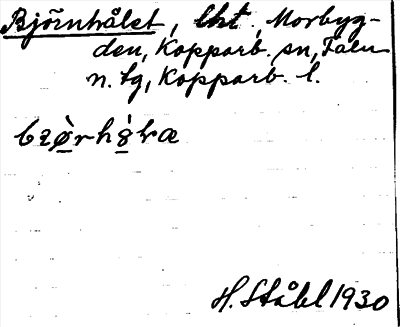 Björnhålet, lht. Morbyg-
den, Kopparb. sn, Falu
n. tg, Kopparb. l.
H. Ståhl 1930